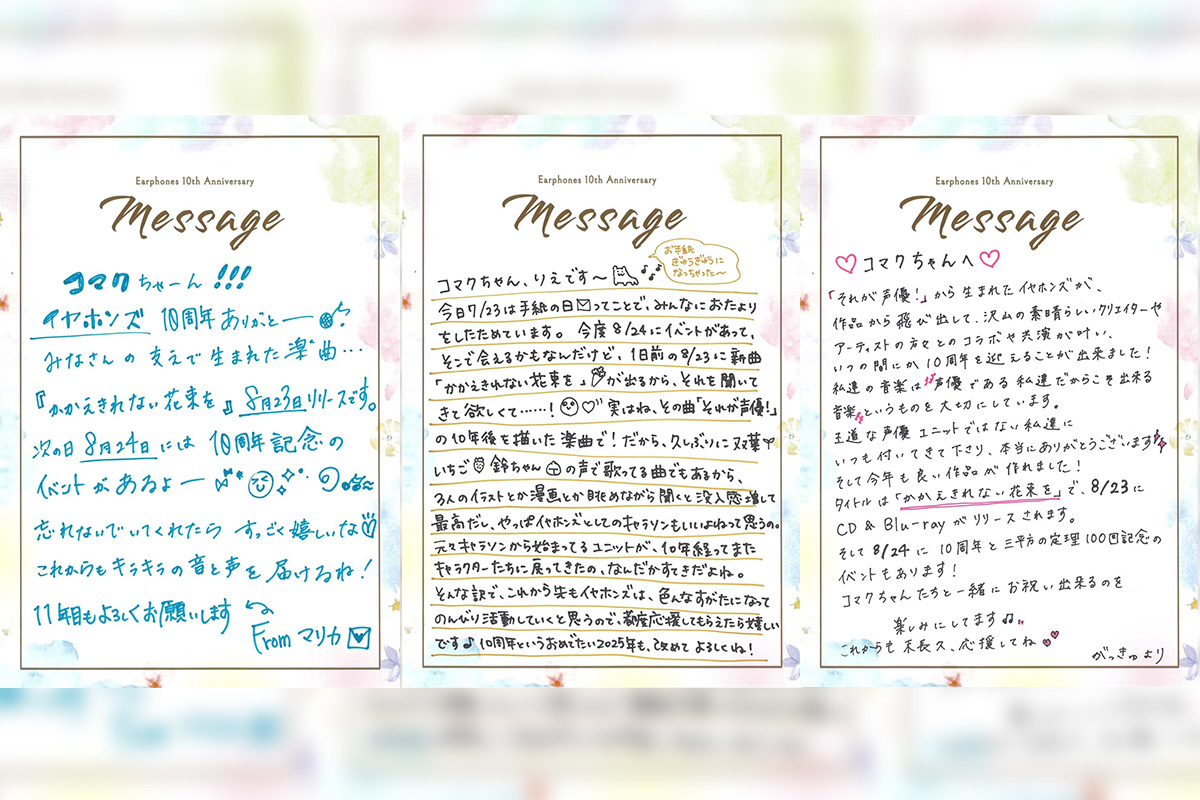 Earphones 10th Anniversary
Message
コマクちゃーん!!!
イヤホンズ 10周年ありがとー
みなさんの支えで生まれた楽曲…
『かかえきれない花束を』8月23日リリースです。
次の日8月24日には10周年記念の
イベントがあるよー
忘れないでいてくれたら すっごく嬉しいな
これからもキラキラの音と声を届けるね!
11年目もよろしくお願いします
From マリカ
Earphones 10th Anniversary
Message
お手紙
ぎゅうぎゅうに
なっちゃった〜
コマクちゃん、りえです〜
今日7/23は手紙の日ってことで、みんなにおたより
をしたためています。今度8/24にイベントがあって、
そこで会えるかもなんだけど、1日前の8/23に新曲
「かかえきれない花束を」が出るから、それを聞いて
きて欲しくて……!実はね、その曲「それが声優!」
の10年後を描いた楽曲で!だから、久しぶりに双葉
いちご鈴ちゃんの声で歌ってる曲でもあるから、
3人のイラストとか漫画とか眺めながら聞くと没入感増して
最高だし、やっぱイヤホンズとしてのキャラソンもいいよねって思うの。
元々キャラソンから始まってるユニットが、10年経ってまた
キャラクターたちに戻ってきたの、なんだかすてきだよね。
そんな訳で、これから先もイヤホンズは、色んなすがたになって
のんびり活動していくと思うので、都度応援してもらえたら嬉しい
です♪10周年というおめでたい2025年も、改めてよろしくね!
Earphones 10th Anniversary
Message
♡コマクちゃんへ♡
「それが声優!」から生まれたイヤホンズが、
作品から飛び出して、沢山の素晴らしいクリエイターや
アーティストの方々とのコラボや共演が叶い、
いつの間にか10周年を迎えることが出来ました!
私達の音楽は〝声優である私達だからこそ出来る
音楽〟というものを大切にしています。
王道な声優ユニットではない私達に
いつも付いてきて下さり、本当にありがとうございます
そして今年も良い作品が作れました!
タイトルは「かかえきれない花束を」で、8/23に
CD & Blu-rayがリリースされます。
そして8/24に10周年と三平方の定理100回記念の
イベントもあります!
コマクちゃんたちと一緒にお祝い出来るのを
楽しみにしてます♫
これからも末長く、応援してね
がっきゅより